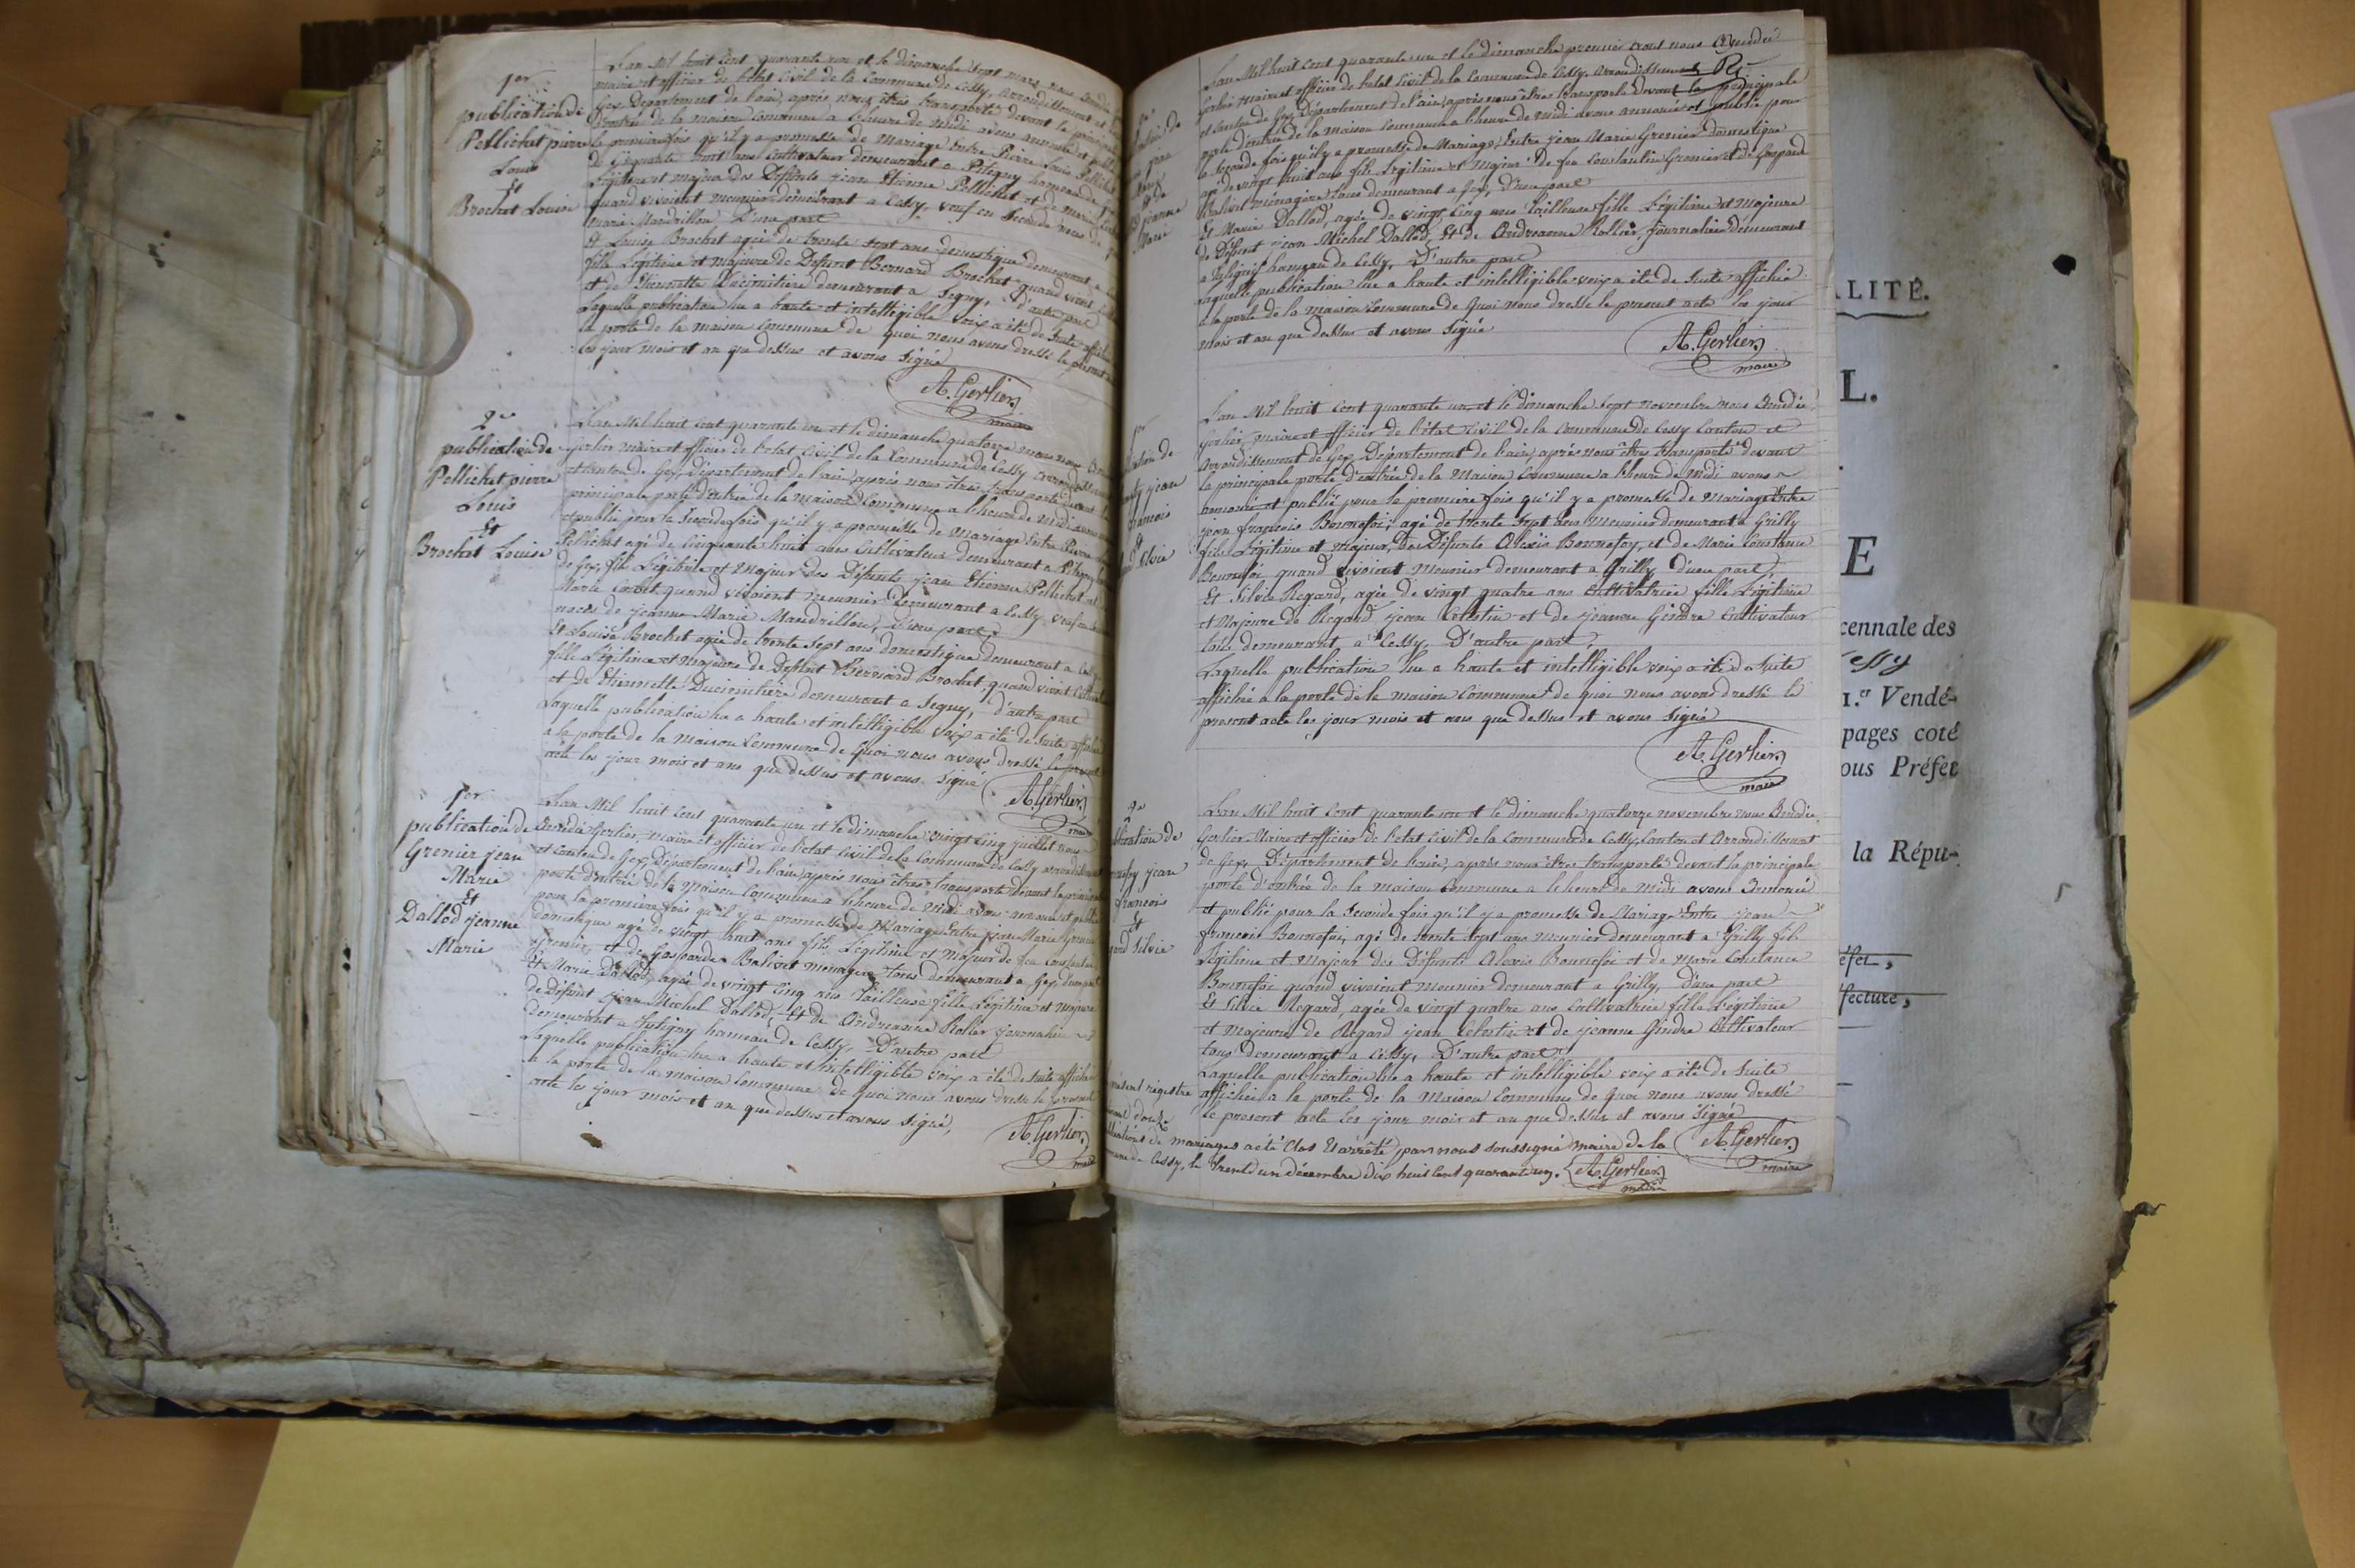 1er
publication de
Pellichet pierre
Louis
Et
Brochet Louise
L'an Mil huit Cent quarante un et le dimanche sept mars nous
maire et officier de l'état Civil de la Commune de Cessy, arrondissement et
Gex Département de l'ain, après nous êtres transporté devant la principale
d'entrée de la maison Commune a l'heure de midi avons annoncé et
la première fois qu'il y a promesse de Mariage Entre Pierre Louis Pellichet
huit ans Cultivateur demeurant a Pitegny hameau de
Légitime et majeur des Défunts jean Etienne Pellichet et de marie
quand vivoient meunier demeurant a Cessy, veuf en seconde noces de
marie Mandrillon D'une part
Et Louise Brochet agée de trente sept ans domestique demeurant a
fille Légitime et majeure de Défunt Bernard Brochet quand vivoit
et de Etiennette Ducimitière demeurant a Segny, D'autre part
Laquelle publication lue a haute et intelligible voix a été de suite affichée
la porte de la maison Commune de quoi nous avons dressé le présent
les jour mois et an que dessus et avons signé
A. Gerlier
maire
2e
publication de
Pellichet pierre
Louis
Et
Brochet Louise
L'an Mil huit Cent quarante un et le dimanche quatorze mars nous
Gerlier maire et officier de l'etat Civil de la Commune de Cessy arrondissement
et Canton de Gex, Département de l'ain, après nous êtres transporté devant la
principale porte d'entrée de la maison Commune a l'heure de midi avons
et publié pour la seconde fois qu'il y a promesse de mariage Entre Pierre
Pellichet agé de Cinquante huit ans Cultivateur demeurant a Pitegny
de Gex, fils Légitime et Majeur des Défunts jean Etienne Pellichet et
Marie quand vivoient meunier demeurant a Cessy veuf en
noces de jeanne Marie Mandrillon, d'une part
Et Louise Brochet agée de trente sept ans domestique demeurant a
fille Légitime et majeure de Défunt Bernard Brochet quand vivoit
et de Etiennette Ducimitière demeurant a Segny, d'autre part
Laquelle publication lue a haute et intelligible voix a été de suite affichée
a la porte de la maison Commune de quoi nous avons dressé le présent
acte les jour mois et ans que dessus et avons signé
A. Gerlier
maire
1er
publication de
Grenier jean
Marie
Et
Dallod jeanne
Marie
L'an Mil huit Cent quarante un et le dimanche vingt cinq juillet nous
Amédée Gerlier maire et officier de l'etat Civil de la Commune de Cessy arrondissement
et Canton de Gex, Département de l'ain, après nous êtres transporté devant la principale
porte d'entrée de la maison Commune a l'heure de midi avons annoncé et publié
pour la première fois qu'il y a promesse de Mariage Entre jean Marie Grenier
domestique agé de vingt huit ans fils Légitime et majeur de feu Constantin
Grenier, et de Gasparde Balivet ménagère tous demeurant a Gex, d'une part
Et Marie Dallod, agée de vingt cinq ans Tailleuse fille Légitime et majeure
de Défunt jean Michel Dallod, Et de Andreanne Rolier journalier
demeurant a hameau de Cessy, D'autre part
Laquelle publication lue a haute et intelligible voix a été de suite affichée
a la porte de la maison Commune de quoi nous avons dressé le présent
acte les jour mois et an que dessus et avons signé,
A. Gerlier
maire
jeanne
Marie
L'an Mil huit Cent quarante un et le dimanche premier aout nous Amédée
Gerlier Maire et officier de l'etat Civil de la Commune de Cessy arrondissement
et Canton de Gex, Département de l'ain, après nous êtres transporté devant la principale
porte d'entrée de la maison Commune a l'heure de midi avons annoncé et publié pour
la seconde fois qu'il y a promesse de Mariage, Entre jean Marie Grenier domestique
agé de vingt huit ans fils Légitime et Majeur De feu Constantin Grenier et de Gasparde
Balivet ménagère tous demeurant a Gex, D'une part
Et Marie Dallod, agée de vingt cinq ans Tailleuse fille Légitime et Majeure
de Défunt jean Michel Dallod, Et de Andreanne Rollier, journalier demeurant
a hameau de Cessy, D'autre part
Laquelle publication lue a haute et intelligible voix a été de suite affichée
a la porte de la maison Commune de quoi nous dressé le présent acte les jour
mois et an que dessus et avons signé
A. Gerlier
maire
jean
francois
et
Silvie
L'an Mil huit Cent quarante un et le dimanche sept novembre nous Amédée
Gerlier, maire et officier de l'état Civil de la Commune de Cessy Canton et
Arrondissement de Gex Département de l'ain, après nous êtres transporté devant
la principale porte d'entrée de la Maison Commune a l'heure de midi avons
annoncé et publié pour la premiere fois qu'il y a promesse de Mariage Entre
jean françois Bonnefoi, agé de trente sept ans meunier demeurant a Grilly
fils Légitime et majeur, des Défunts Alexis Bonnefoy, et de Marie Constance
Bonnefoi quand vivoient Meunier demeurant a Grilly d'une part
Et Silvie Regard, agée de vingt quatre ans Cultivatrice fille Légitime
et Majeure de Regard jean Celestin et de jeanne Gindre Cultivateur
tous demeurant a Cessy, D'autre part,
Laquelle publication lue a haute et intelligible voix a été de suite
affichée a la porte de la maison Commune de quoi nous avons dressé le
présent acte les jour mois et ans que dessus et avons signé
A. Gerlier
maire
2e
jean
francois
Et
Silvie
L'an Mil huit Cent quarante un et le dimanche quatorze novembre nous Amédée
Gerlier Maire et officier de l'etat Civil de la Commune de Cessy, Canton et Arrondissement
de Gex, Département de l'ain, après nous êtres transporté devant la principale
porte d'entrée de la maison Commune a l'heure de midi avons annoncé
et publié pour la seconde fois qu'il y a promesse de Mariage Entre jean
francois Bonnefoi, agé de trente sept ans meunier demeurant a Grilly fils
Légitime et Majeur des Défunts Alexis Bonnefoi et de Marie Constance
Bonnefoi quand vivoient meunier demeurant a Grilly, D'une part
Et Silvie Regard, agée de vingt quatre ans Cultivatrice fille Légitime
et Majeure de Regard jean Celestin et de jeanne Gindre Cultivateur
tous demeurant a Cessy, D'autre part
Laquelle publication lue a haute et intelligible voix a été de suite
affichée a la porte de la Maison Commune de quoi nous avons dressé
le present acte les jour mois et an que dessus et avons signé
A. Gerlier
maire
registre
de mariages a été Clos Et arrêté, par nous soussigné maire de la
de Cessy, le trent'un décembre dix huit cent quarant'un.
A. Gerlier
maire
LITÉ.
L.
E
cennale des
1.er Vendé-
pages coté
ous Préfet
la Répu-
éfet,
fecture,